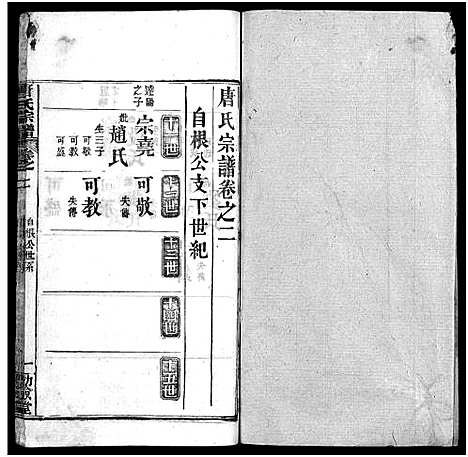 唐氏宗譜卷之二
自根公支下世紀
十一世
十二世
十三世
十四世
十五世
達
之子
宗堯
妣
趙氏
生三子
可敬
可教
可盛
可敬
失傳
可教
失傳
唐氏宗譜
卷之二
自根公世系
一